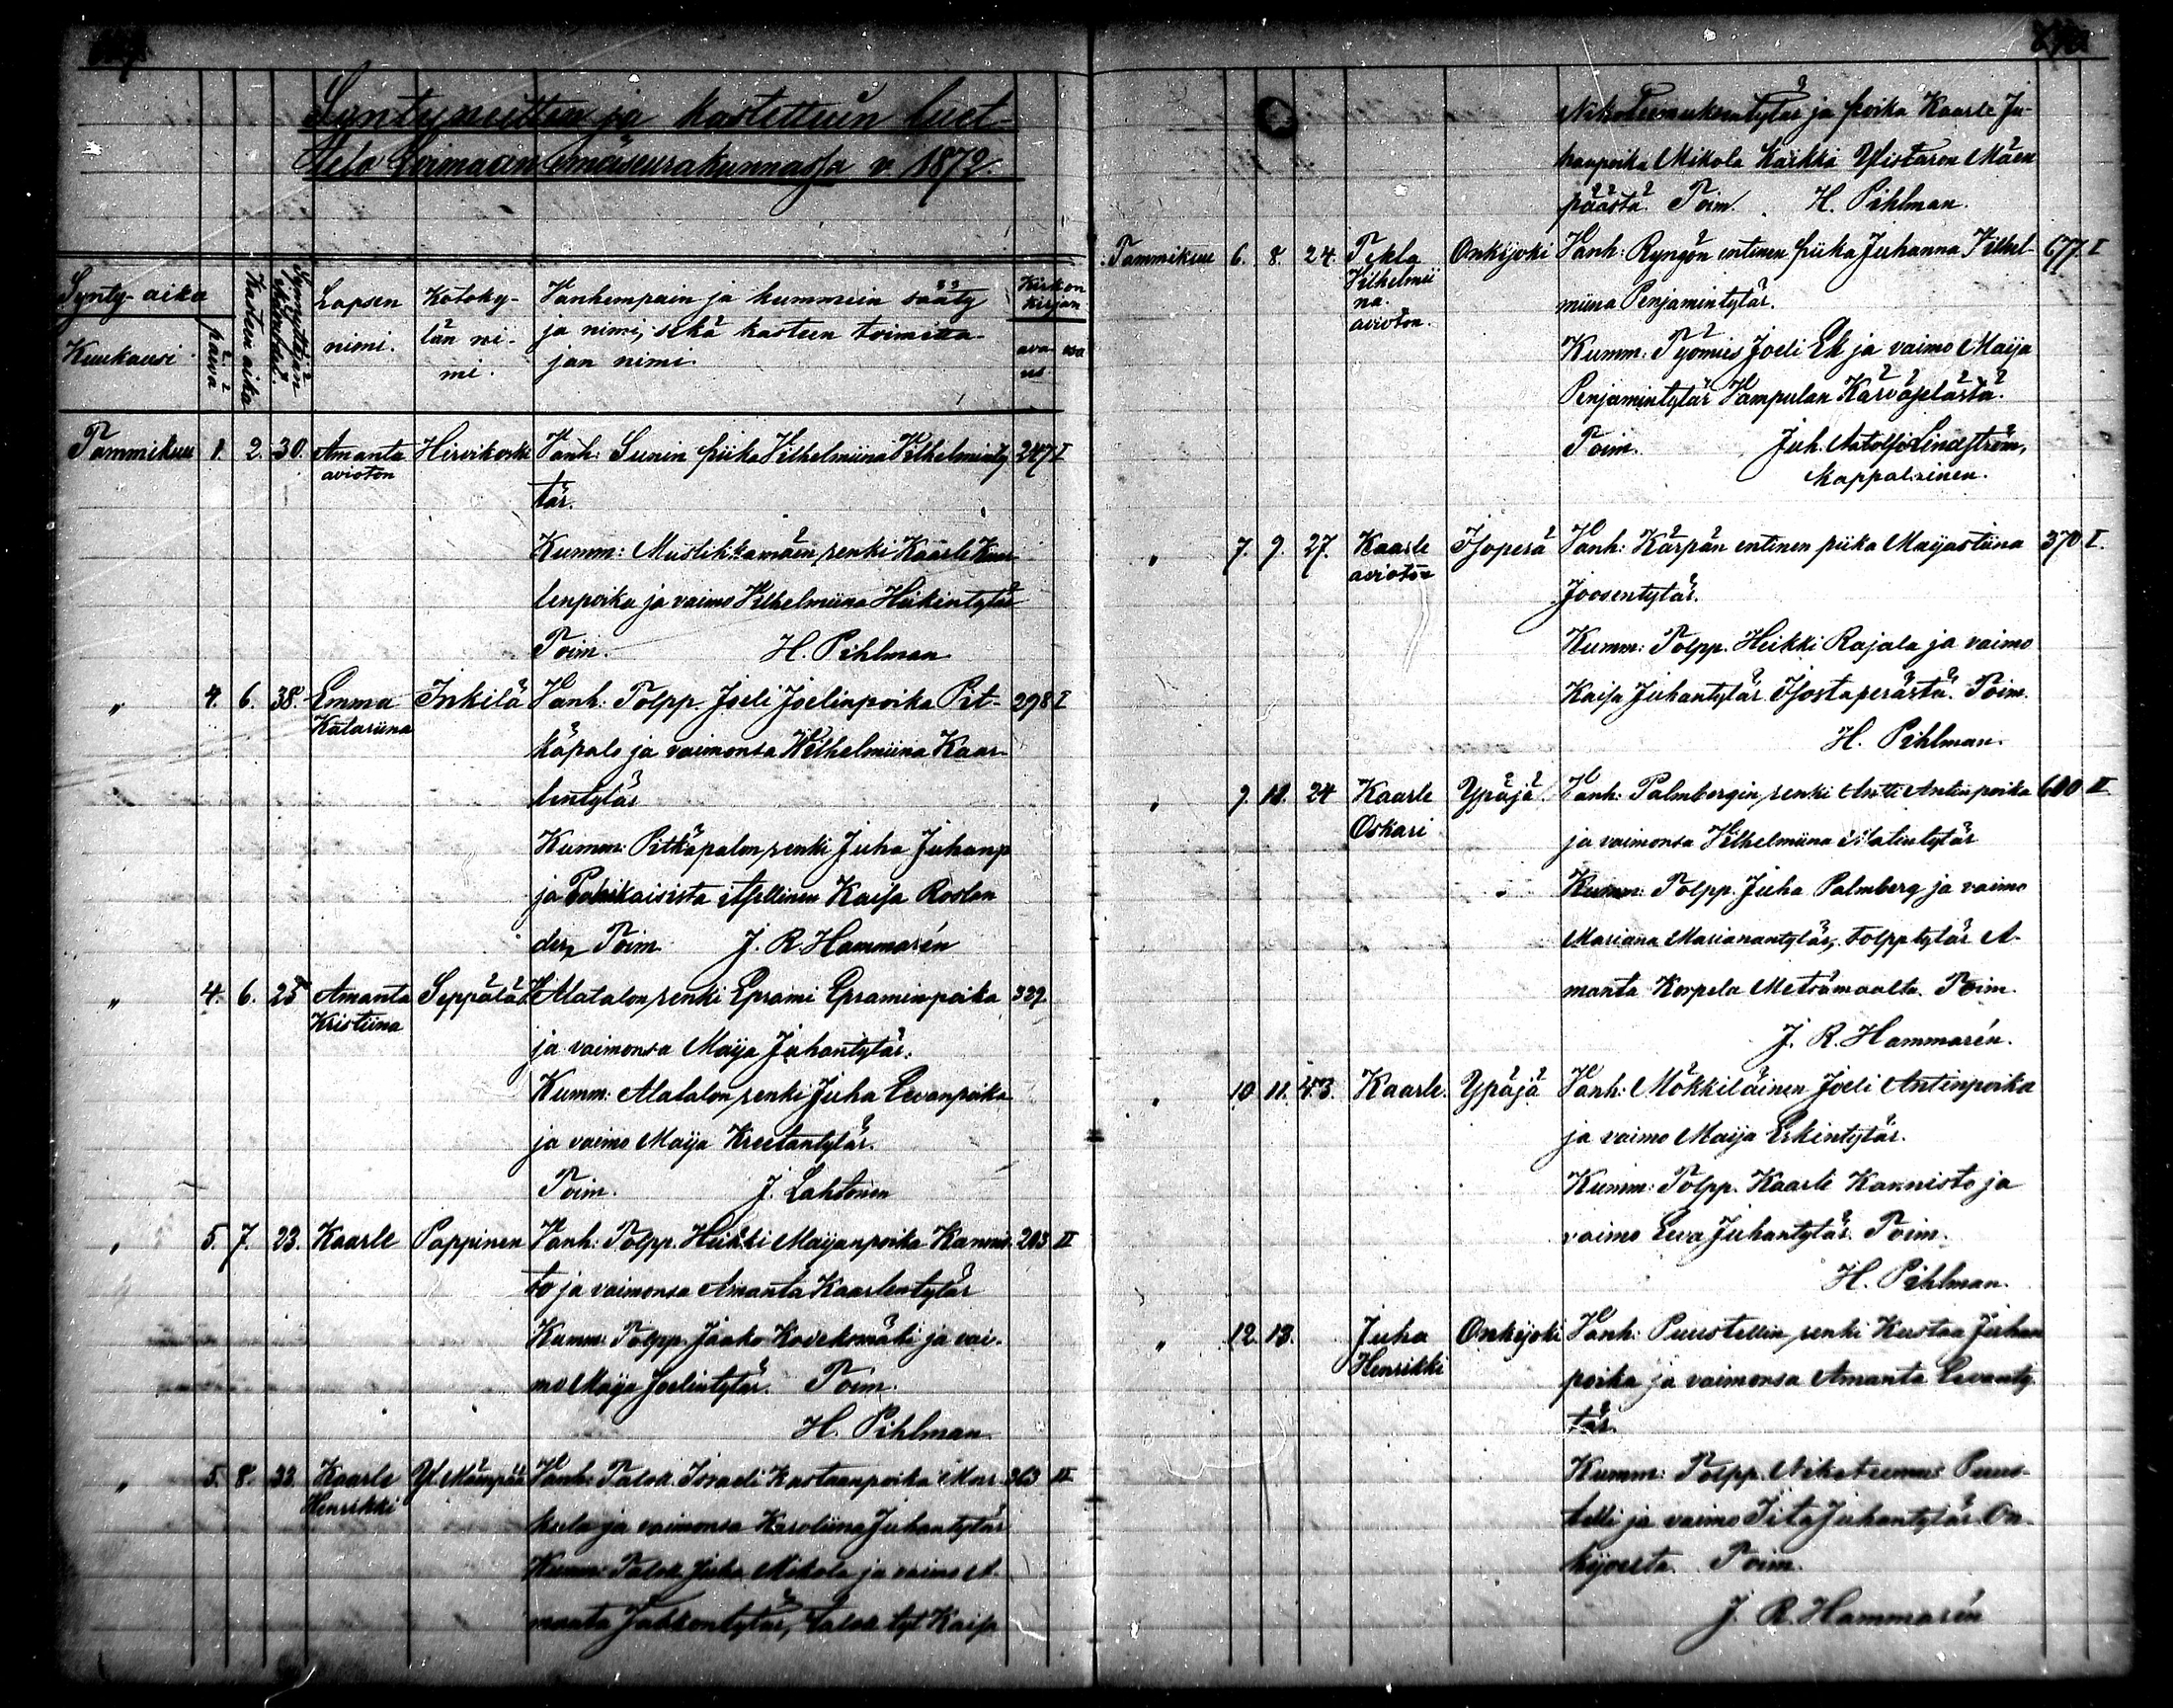 Syntyneitten ja kastettuin luet-
telo Loimaan emäseurakunnassa v. 1872.
Synty-aika
Kuukausi
päivä
Kasteen aika
Synnyttäjän
Lapsen
nimi.
Kotoky-
län ni-
mi.
Vanhempain ja kummein sääty
ja nimi, sekä kasteen toimitta-
jan nimi
Kirkon
kirjan
Tammikuu 1. 2. 30. Amanta Hirvikoski Vanh: Sunin piika Vilhelmiina Vilhelminty 247 I
avioton
tär.
Kumm: Mustikkamäen renki Kaarle Kaar
lenpoika ja vaimo Vilhelmiina Heikintytär
Toim. H. Pihlman
" 4. 6. 38. Emma Inkilä Vanh: Tolpp. Joeli Joelinpoika Pit- 298 I
Katariina
käpalo ja vaimonsa Vilhelmiina Kaar-
lentytär
Kumm: Pitkäpalon renki Juha Juhanp
ja itsellinen Kaisa Roslan
der, Toim. J. R. Hammarén
" 4. 6. 25 Amanta Seppälä V. Alatalon renki Eprami Epraminpoika 339.
Kristiina
ja vaimonsa Maija Juhantytär.
Kumm: Alatalon renki Juha Eevanpoika
ja vaimo Maija Kreetantytär.
Toim. J. Lahtonen
" 5. 7. 23. Kaarle Pappinen Vanh: Tolpp. Heikki Maijanpoika Kannis- 203 II
to ja vaimonsa Amanta Kaarlentytär
Kumm: Tolpp. Jaako Koverkomäki ja vai-
mo Maija Joelintytär. Toim.
H. Pihlman
" 5. 8. 33. Kaarle Yl. Mäenpää Vanh: Talok. Israeli Kustaanpoika Mar- 363 II
Henrikki
kula ja vaimonsa Karoliina Juhantytär
Kumm: Talok. Juha Mikola ja vaimo A-
manta Jaakkontytär, talok. tyt Kaisa
Nikoteemuksentytär ja poika Kaarle Ju-
hanpoika Mikola Karkki Ylistaron Mäen
päästä. Toim. H. Pihlman.
Tammikuu 6. 8. 24. Tekla Onkijoki Vanh: Ryngön entinen piika Juhanna Vilhel- 677. I
Vilhelmii
na.
avioton.
miina Penjamintytär.
Kumm: Työmies Joeli Ek ja vaimo Maija
Penjamintytär Vampulan Kärväjelästä.
Toim. Juh. Adolf Lindström,
kappalainen.
" 7. 9. 27. Kaarle Isoperä Vanh: Kärpän entinen piika Maijastiina 370 I.
avioton
Joosentytär.
Kumm: Tolpp. Heikki Rajala ja vaimo
Kaisa Juhantytär Isostaperästä. Toim.
H. Pihlman.
" 9. 24 Kaarle Ypäjä. Vanh: Palmbergin renki Antti Antinpoika 600 II
Oskari
ja vaimonsa Vilhelmiina Matintytär
Kumm: Tolpp. Juha Palmberg ja vaimo
Mariana Marianantytär, tolpp tytär A-
manta Korpela Metsämaalta. Toim.
J. R. Hammarén.
" 10. 11. 43. Kaarle. Ypäjä Vanh: Mökkiläinen Joeli Antinpoika
ja vaimo Maija Erkintytär.
Kumm: Tolpp. Kaarle Kannisto ja
vaimo Eeva Juhantytär. Toim.
H. Pihlman.
" 12. 13. Juha Onkijoki Vanh: Puustellin renki Kustaa Juhan
Henrikki
poika ja vaimonsa Amanta Eevanty
tär.
Kumm: Tolpp. Nikoteemus Puus-
telli ja vaimo Iita Juhantytär On-
kijoesta. Toim.
J. R. Hammarén